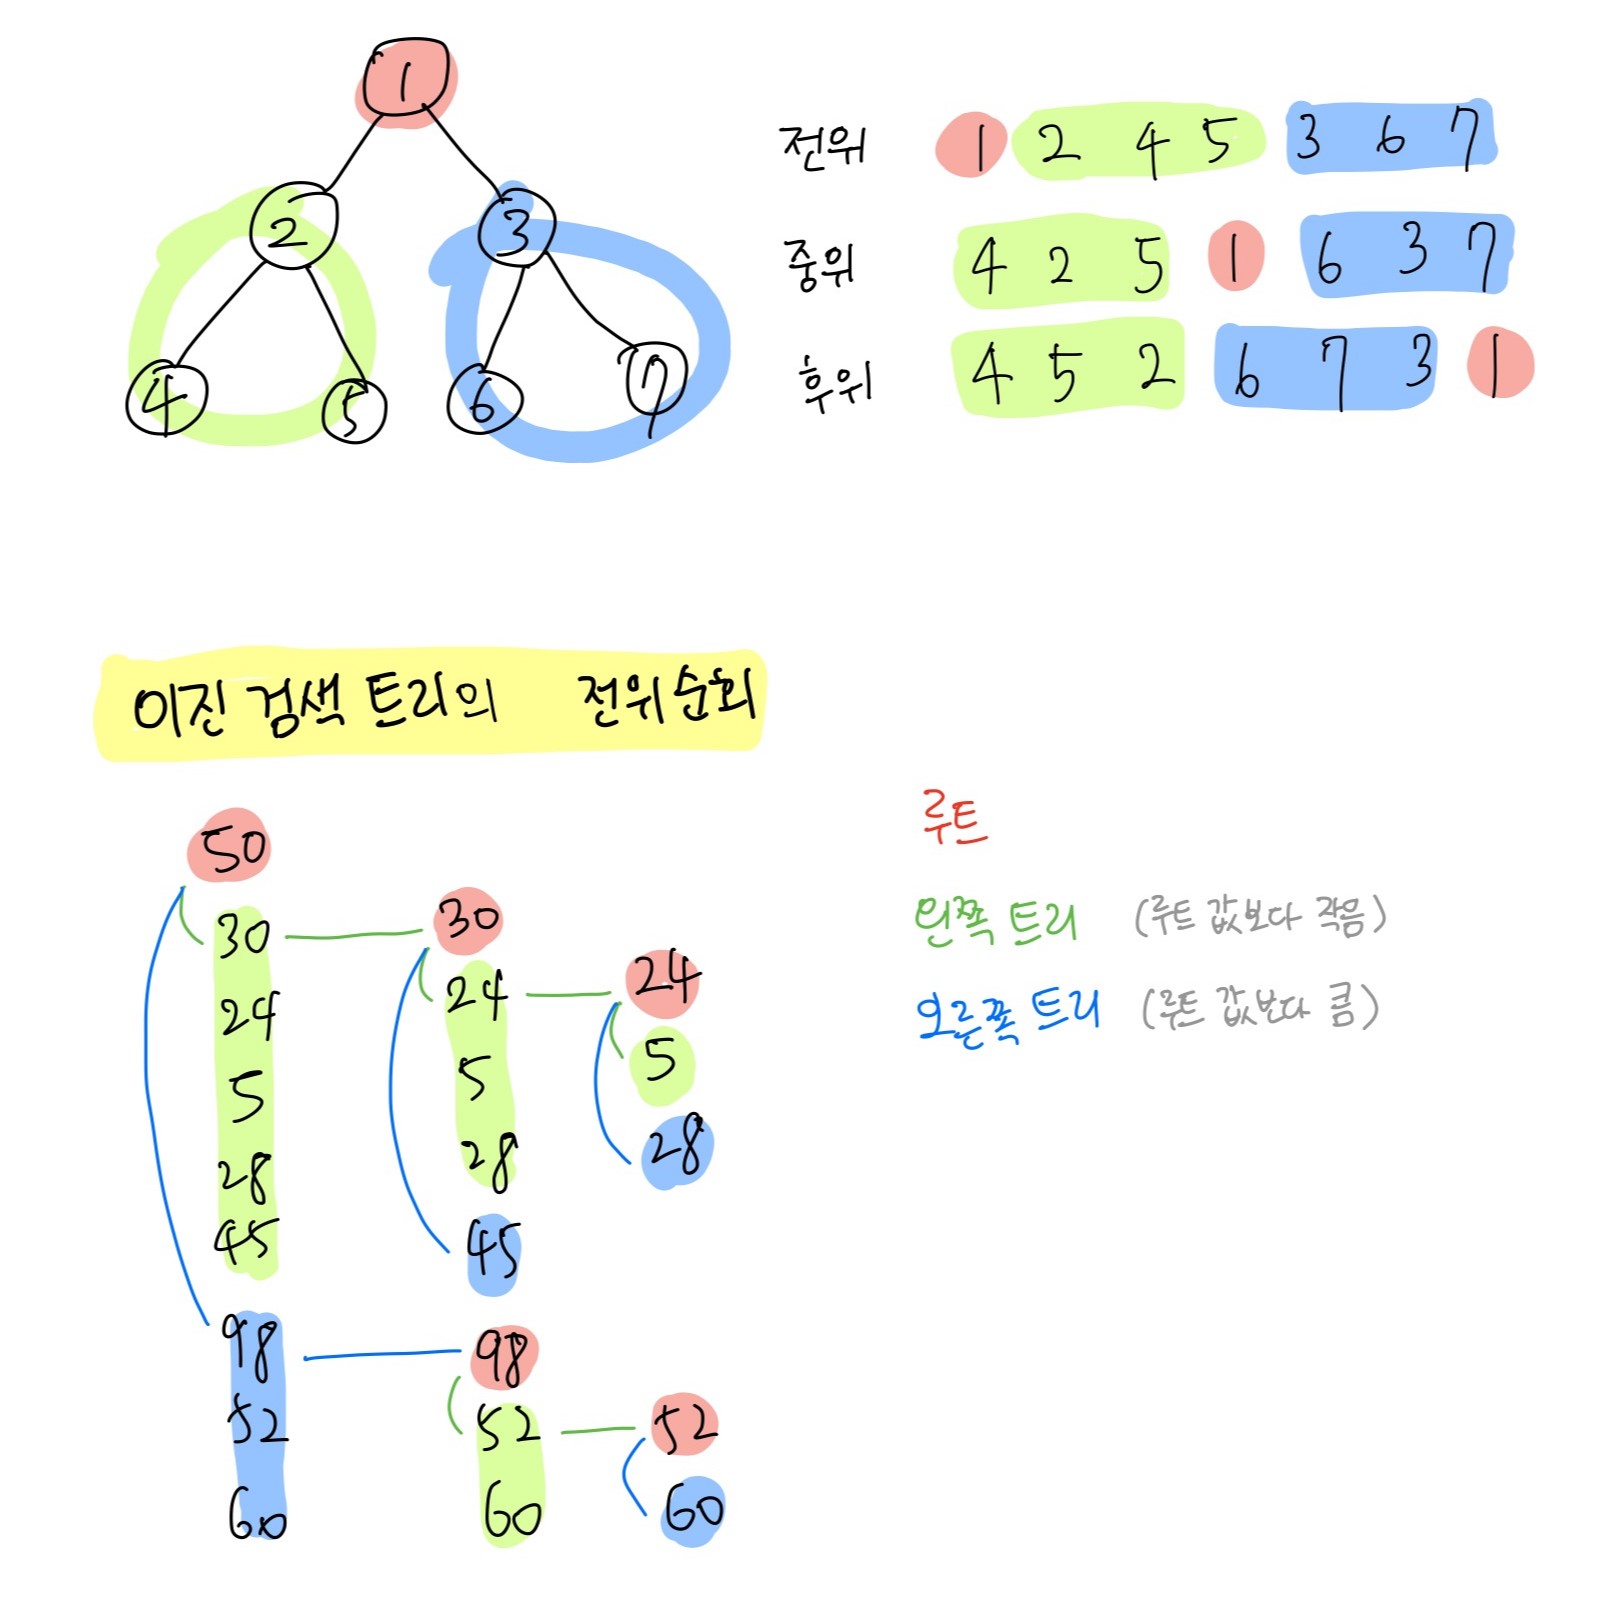 1
2 3
4 5 6 7
전위 1 2 4 5 3 6 7
중위 4 2 5 1 6 3 7
후위 4 5 2 6 7 3 1
이진 검색 트리의 전위순회
50
30 30
24 24 24
5 5 5
28 28 28
45 45
98 98
52 52 52
60 60 60
루트
왼쪽 트리 (루트 값보다 작음)
오른쪽 트리 (루트 값보다 큼)